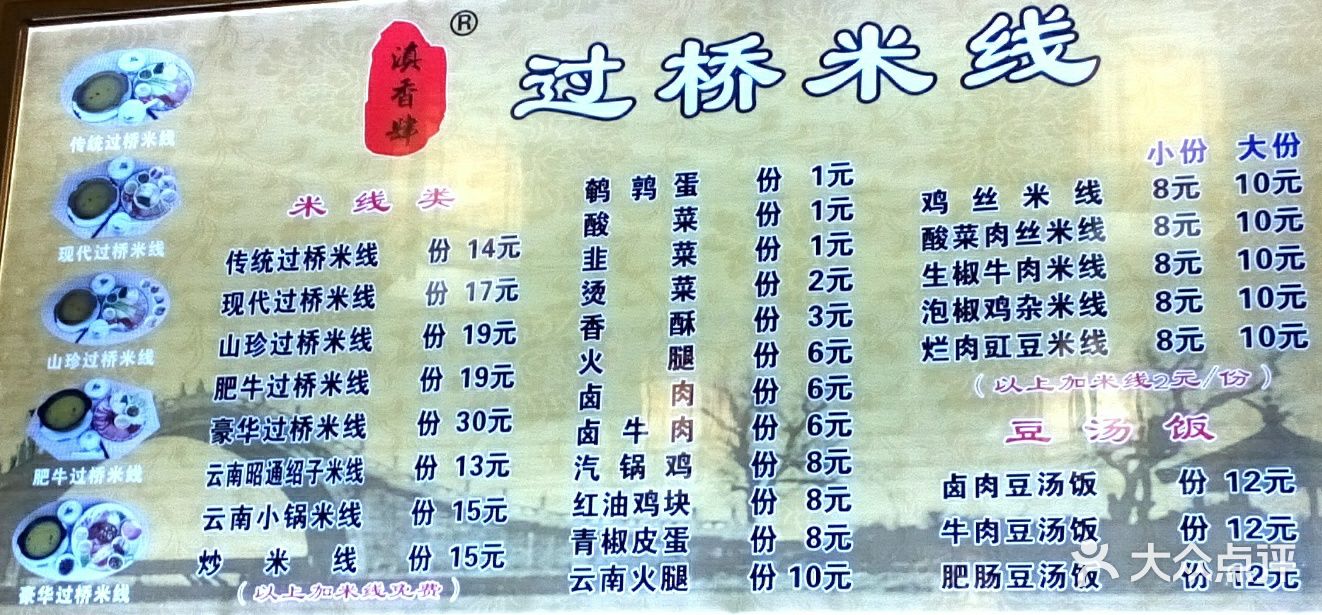 滇香肆
®
过桥米线
传统过桥米线
现代过桥米线
山珍过桥米线
肥牛过桥米线
豪华过桥米线
米线类
传统过桥米线 份 14元
现代过桥米线 份 17元
山珍过桥米线 份 19元
肥牛过桥米线 份 19元
豪华过桥米线 份 30元
云南昭通绍子米线 份 13元
云南小锅米线 份 15元
炒米线 份 15元
(以上加米线免费)
鹌鹑蛋 份 1元
酸菜 份 1元
韭菜 份 1元
烫菜 份 2元
香酥 份 3元
火腿 份 6元
卤肉 份 6元
卤牛肉 份 6元
汽锅鸡 份 8元
红油鸡块 份 8元
青椒皮蛋 份 8元
云南火腿 份 10元
小份 大份
鸡丝米线 8元 10元
酸菜肉丝米线 8元 10元
生椒牛肉米线 8元 10元
泡椒鸡杂米线 8元 10元
烂肉豇豆米线 8元 10元
(以上加米线2元/份)
豆汤饭
卤肉豆汤饭 份 12元
牛肉豆汤饭 份 12元
肥肠豆汤饭 份 12元
大众点评